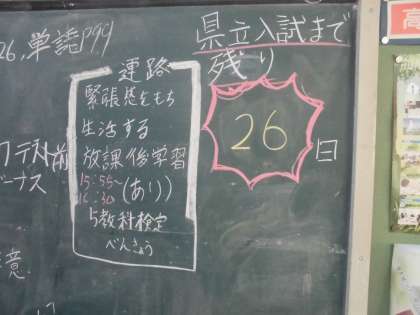 26,単語P99
県立入試まで
残り
26
日
連路
緊張感をもち
生活する
放課後学習
15:55~
16:30(あり)
5教科検定
べんきょう
前
ーナス
意
高